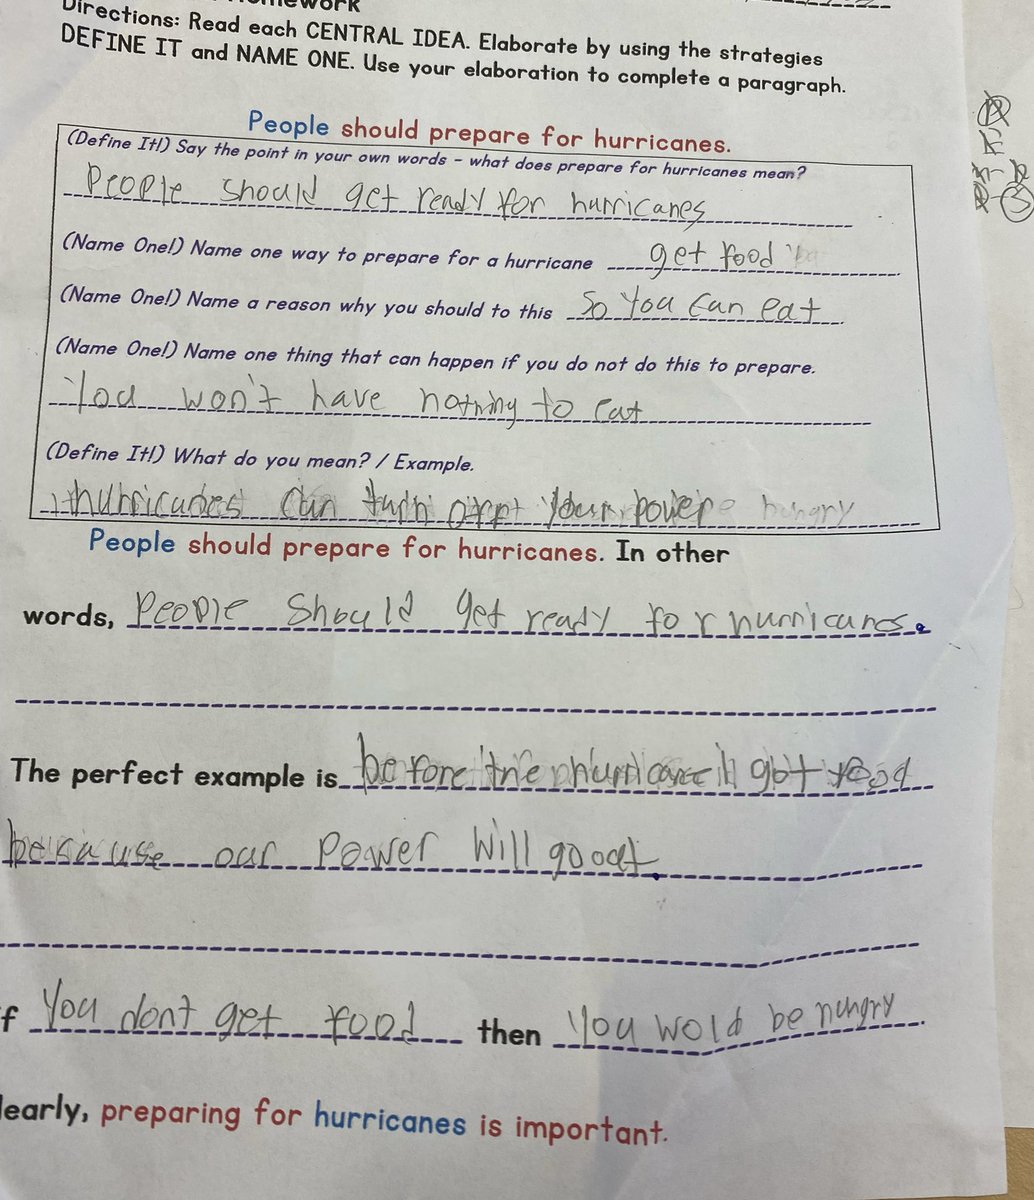 Homework
Directions: Read each CENTRAL IDEA. Elaborate by using the strategies
DEFINE IT and NAME ONE. Use your elaboration to complete a paragraph.
People should prepare for hurricanes.
(Define It!) Say the point in your own words - what does prepare for hurricanes mean?
People should get ready for hurricanes
(Name One!) Name one way to prepare for a hurricane get food
(Name One!) Name a reason why you should to this so you can eat
(Name One!) Name one thing that can happen if you do not do this to prepare.
You won't have nothing to eat
(Define It!) What do you mean? / Example.
hurricanes can turn off your power hungry
People should prepare for hurricanes. In other
words, People should get ready for hurricanes.
The perfect example is before the hurricane I got food
because our power will go out.
If you dont get food then you wold be hungry
learly, preparing for hurricanes is important.